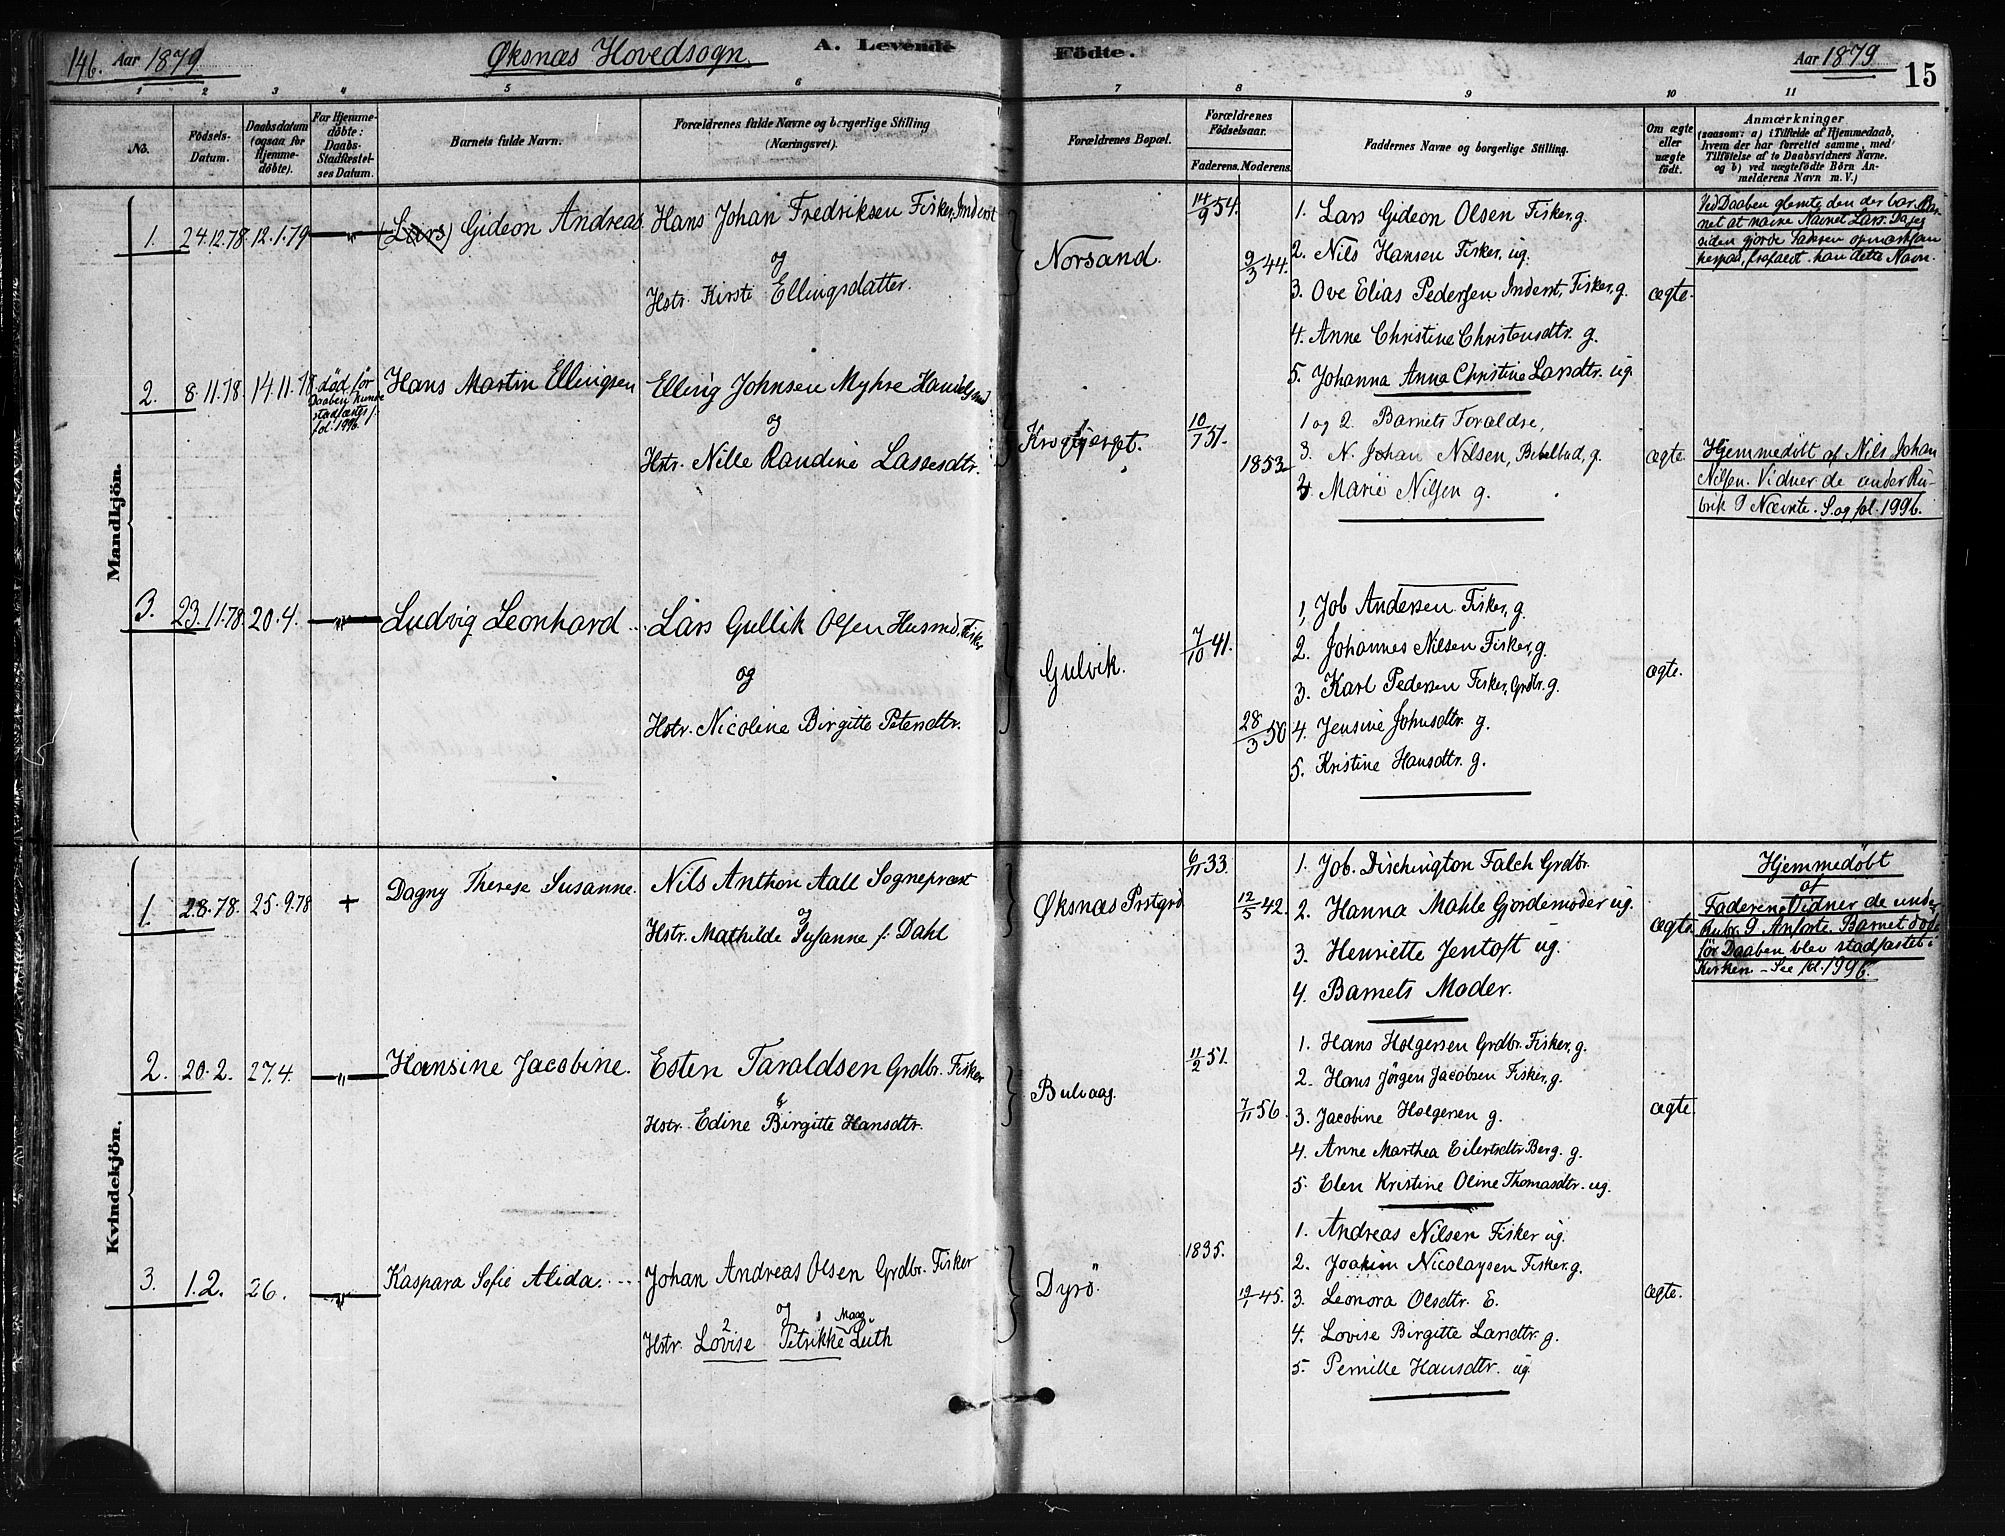 146. Aar 1879 Øksnæs Hovedsogn. A. Levende Födte. Aar 1879 15
1 2 3 4 5 6 7 8 9 10 11
No.
Födsels-Datum.
Daabsdatum (ogsaa for Hjemmedöbte).
For Hjemmedöbte: Daabs-Stadfæstelses Datum.
Barnets fulde Navn.
Forældrenes fulde Navne og borgerlige Stilling (Næringsvei).
Forældrenes Bopæl.
Forældrenes Födselsaar.
Faderens. Moderens.
Faddernes Navne og borgerlige Stilling.
Om ægte eller uægte födt.
Anmærkninger
(saasom: a) i Tilfælde af Hjemmedaab,
hvem der har forrettet samme, med
Tilföielse af to Daabsvidners Navne.
og b) ved uægtefödte Börn An-
melderens Navn m. V.)
Mandkjön.
1. 24.12.78. 12.1.79 — " — (Lars) Gideon Andreas. Hans Johan Fredriksen Fisker, Inderst
og
Hstr. Kirste Ellingsdatter.
Norsand.
14/9 54.
9/3 44.
1. Lars Gideon Olsen Fisker, g.
2. Nils Hansen Fisker, ug.
3. Ove Elias Pedersen Inderst, Fisker, g.
4. Anne Christine Christensdtr. g.
5. Johanna Anna Christine Larsdtr. ug.
ægte.
Ved Daaben glemte den der bar Bar-
net at nævne Navnet Lars. Da jeg
siden gjorde Faderen opmærksom
herpaa, frafaldt han dette Navn.
2. 8.11.78. 14.11.78. död før
Daaben kunde
stadfæstes f.
fol. 199b.
Hans Martin Ellingsen
Elling Johnsen Myhre Handelsmd
og
Hstr. Nille Randine Lassesdtr.
10/7 51.
1853
1 og 2. Barnets Foraldre,
3 N. Johan Nilsen, g.
4 Marie Nilsen g.
ægte.
Hjemmedöbt af Nils Johan
Nilsen. Vidner de under Ru-
brik 9 Nævnte. S. og fol. 199b.
3. 23.11.78. 20.4. — " — Ludvig Leonhard ... Lars Gullik Olsen Husmd. Fisker
og
Hstr. Nicoline Birgitte Petersdtr.
Gulvik.
7/10 41.
28/3 50
1, Job Andersen Fisker, g.
2. Johannes Nilsen Fisker, g.
3. Karl Pedersen Fisker, Grdbr. g.
4. Jensine Johnsdtr. g.
5. Kristine Hansdtr. g.
ægte.
Kvindekjön.
1. 2.8.78. 25.9.78 + Dagny Therese Susanne. Nils Anthon Aall Sognepræst
og
Hstr. Mathilde Susanne f. Dahl
Øksnæs Prstgrd
33.
12/5 42.
1. Job. Dischington Falch Grdbr.
2. Hanna Mahle Gjordemoder ug.
3. Henriette Jentoft ug.
4. Barnets Moder.
ægte
Hjemmedöbt
af
Faderen. Vidner de under
Rubr. 9 Anførte. Barnet döde
før Daaben blev stadfæstet i
Kirken – See fol. 199b.
2. 20.2. 27.4. — " — Hansine Jacobine. Esten Taraldsen Grdbr. Fisker
&
Hstr. Edine Birgitte Hansdtr.
Bulvaag.
11/2 51.
7/11 56.
1. Hans Holgersen Grdbr. Fisker, g.
2. Hans Jørgen Jacobsen Fisker, g.
3. Jacobine Holgersen g.
4. Anne Marthea Eilertsdtr Berg. g.
5. Elen Kristine Oline Thomasdtr. ug.
ægte
3. 1.2. 26. — " — Kaspara Sofie Alida. .... Johan Andreas Olsen Grdbr. Fisker
og
Hstr. Lovise Petrikke Maag Lüth
Dyrö.
1835.
19/1 45.
1. Andreas Nilsen Fisker ug.
2. Joakim Nicolaysen Fisker. g.
3. Leonora Olsdtr. E.
4. Lovise Birgitte Larsdtr. g.
5. Pernille Hansdtr. ug.
ægte.